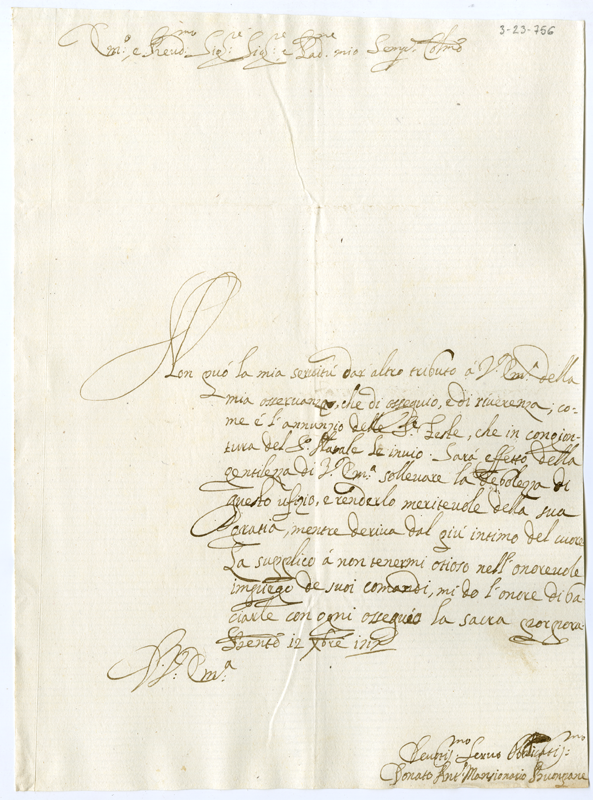 3-23-756
Em.º e Reued.mo Sig.re Sig.re e Pad. mio Semp. Colmo
Non può la mia seruitù dar altro tributo à V.ª Em.ª della
mia osseruanza, che di ossequio, e di riuerenza; co-
me è l'annunzio delle S.te Feste, che in congion-
tura del S.º Natale le inuio. Sarà effetto della
gentilezza di V.ª Em.ª solleuare la debolezza di
questo ufizio, e renderlo meriteuole della sua
gratia, mentre deriua dal più intimo del cuore
La supplico à non tenermi otioso nell'onoreuole
impiego de suoi comandi, mi do l'onore di ba-
ciarle con ogni ossequio la sacra porpora
Trento 12 Xbre
V.ª Em.ª
Deuotiss.mo Seruo Obligatiss.mo
Donato Ant.º Mansionario